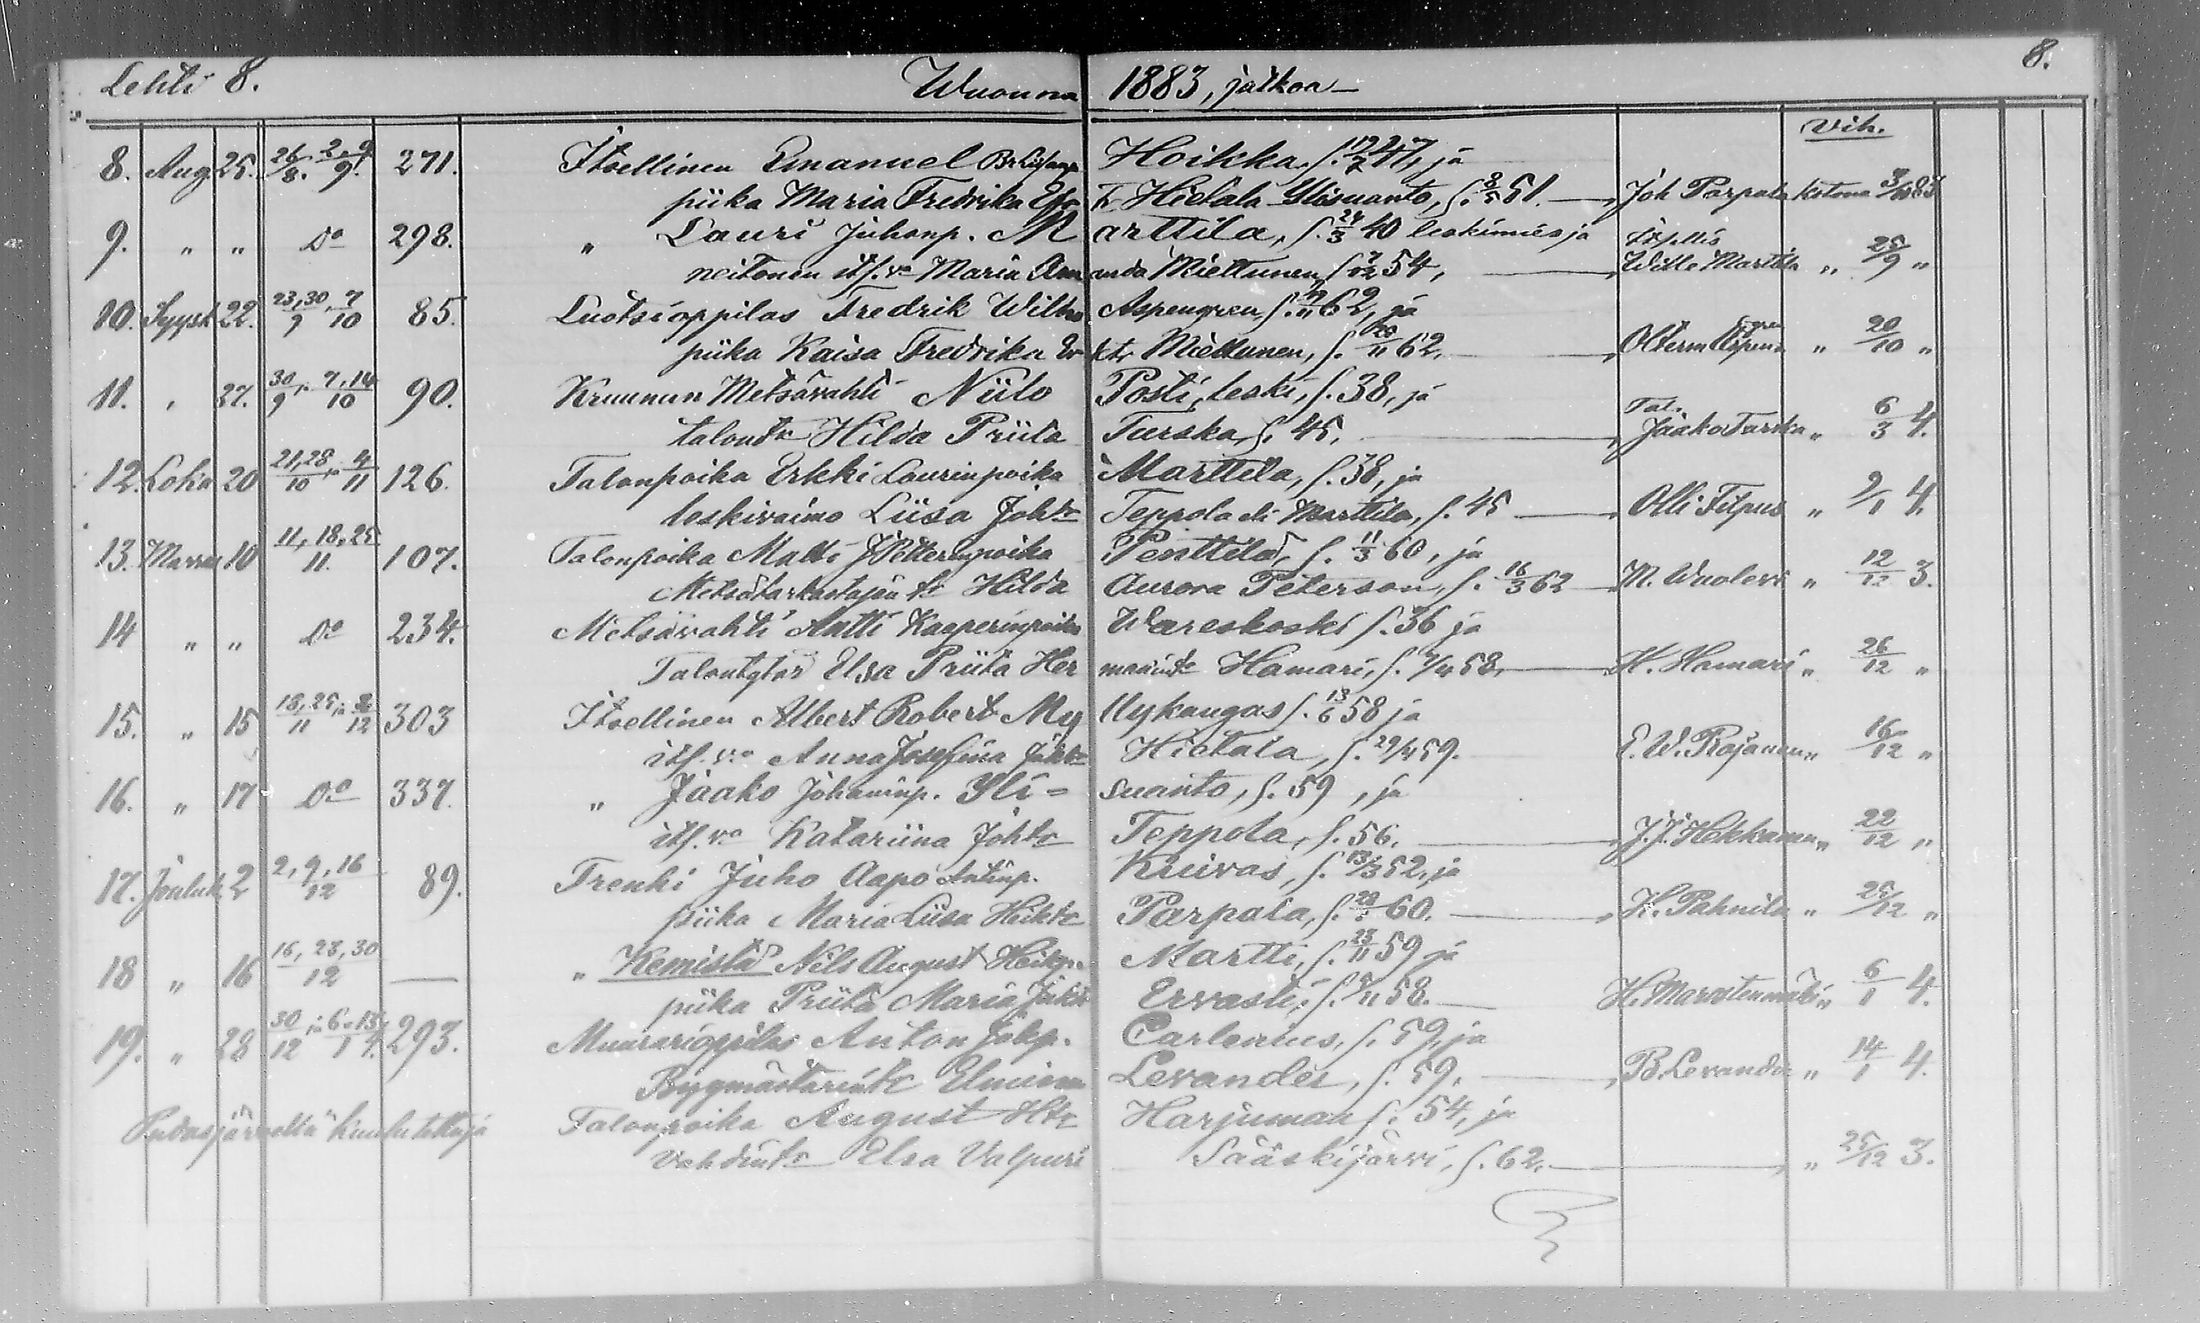 Lehti 8. Wuonna 1883, jatkoa 8.
Vih.
8. Aug 25. 26/8. 2, 9/9. 271. Itsellinen Emanuel Hoikka, s. 47, ja
piika Maria Fredrika Hietala Ylisuanto, s. 51. Joh Parpala kotona
9. " " Do 298. " Lauri Juhonp. Marttila, s. 24/3 40 leskimies ja
neitonen its. va Maria Amanda Miettunen, s. 54, Wille Marttila " 25/9 "
10. Syysk 22. 23,30/9 7/10 85. Luotsioppilas Fredrik Wilho Aspengren, s. 62, ja
piika Kaisa Fredrika Miettunen, s. 20/11 62. " 20/10 "
11. " 27. 30/9 7,14/10 90. Kruunun Metsävahti Niilo Posti, leski, s. 38, ja
talontr Hilda Priita Turska, s. 45. Tal. Jaako Turska " 6/3 4.
12. Loka 20 21,28/10 4/11 126. Talonpoika Erkki Laurinpoika Marttila, s. 38, ja
leskivaimo Liisa Johtr Teppola eli Marttila, s. 45 Olli Filpus " 9/1 4.
13. Marras 10 11, 18, 25/11. 107. Talonpoika Matti J Petterinpoika Penttilä, s. 11/3 60, ja
Metsätarkastajan tr Hilda Aurora Peterson, s. 16/3 62 M. Wuolevi " 12/12 3.
14 " " Do 234. Metsävahti Antti Kasperinpoika Wareskoski s. 36 ja
Talontytär Elsa Priita Hermannintr Hamari, s. 58, H. Hamari " 26/12 "
15. " 15 18,25/11 2/12 303 Itsellinen Albert Robert Myllykangas s. 13/6 58 ja
its. va Anna Josefina Johtr Hietala, s. 29/4 59. E. W. Rajanen " 16/12 "
16. " 17 Do 337. " Jaako Johaninp. Yli=suanto, s. 59, ja
its. va Katariina Johtr Teppola, s. 56. J. J. Hekkanen " 22/12 "
17. Jouluk 2 2, 9, 16/12 89. Trenki Juho Aapo Antinp. Kuivas, s. 13/3 52, ja
piika Maria Liisa Heiktr Parpala, s. 60. H. Pahnila " 25/12 "
18 " 16 16, 23, 30/12 — " Kemistä Nils August Heikp. Martti, s. 23/11 59 ja
piika Priita Maria Ervasti, s. 58. H. Marostenmäki " 6/1 4.
19. " 28 30/12 6, 13/1 4. 293. Muurarioppilas Anton Jakp. Carlenius, s. 59, ja
Byggmästarintr Elmiina Levander, s. 59. B. Levander " 14/1 4.
Pudasjärvellä kuulutettuja Talonpoika August Harjumaa s. 54, ja
Vahdintr Elsa Valpuri Sääskijärvi, s. 62. " 25/12 3.